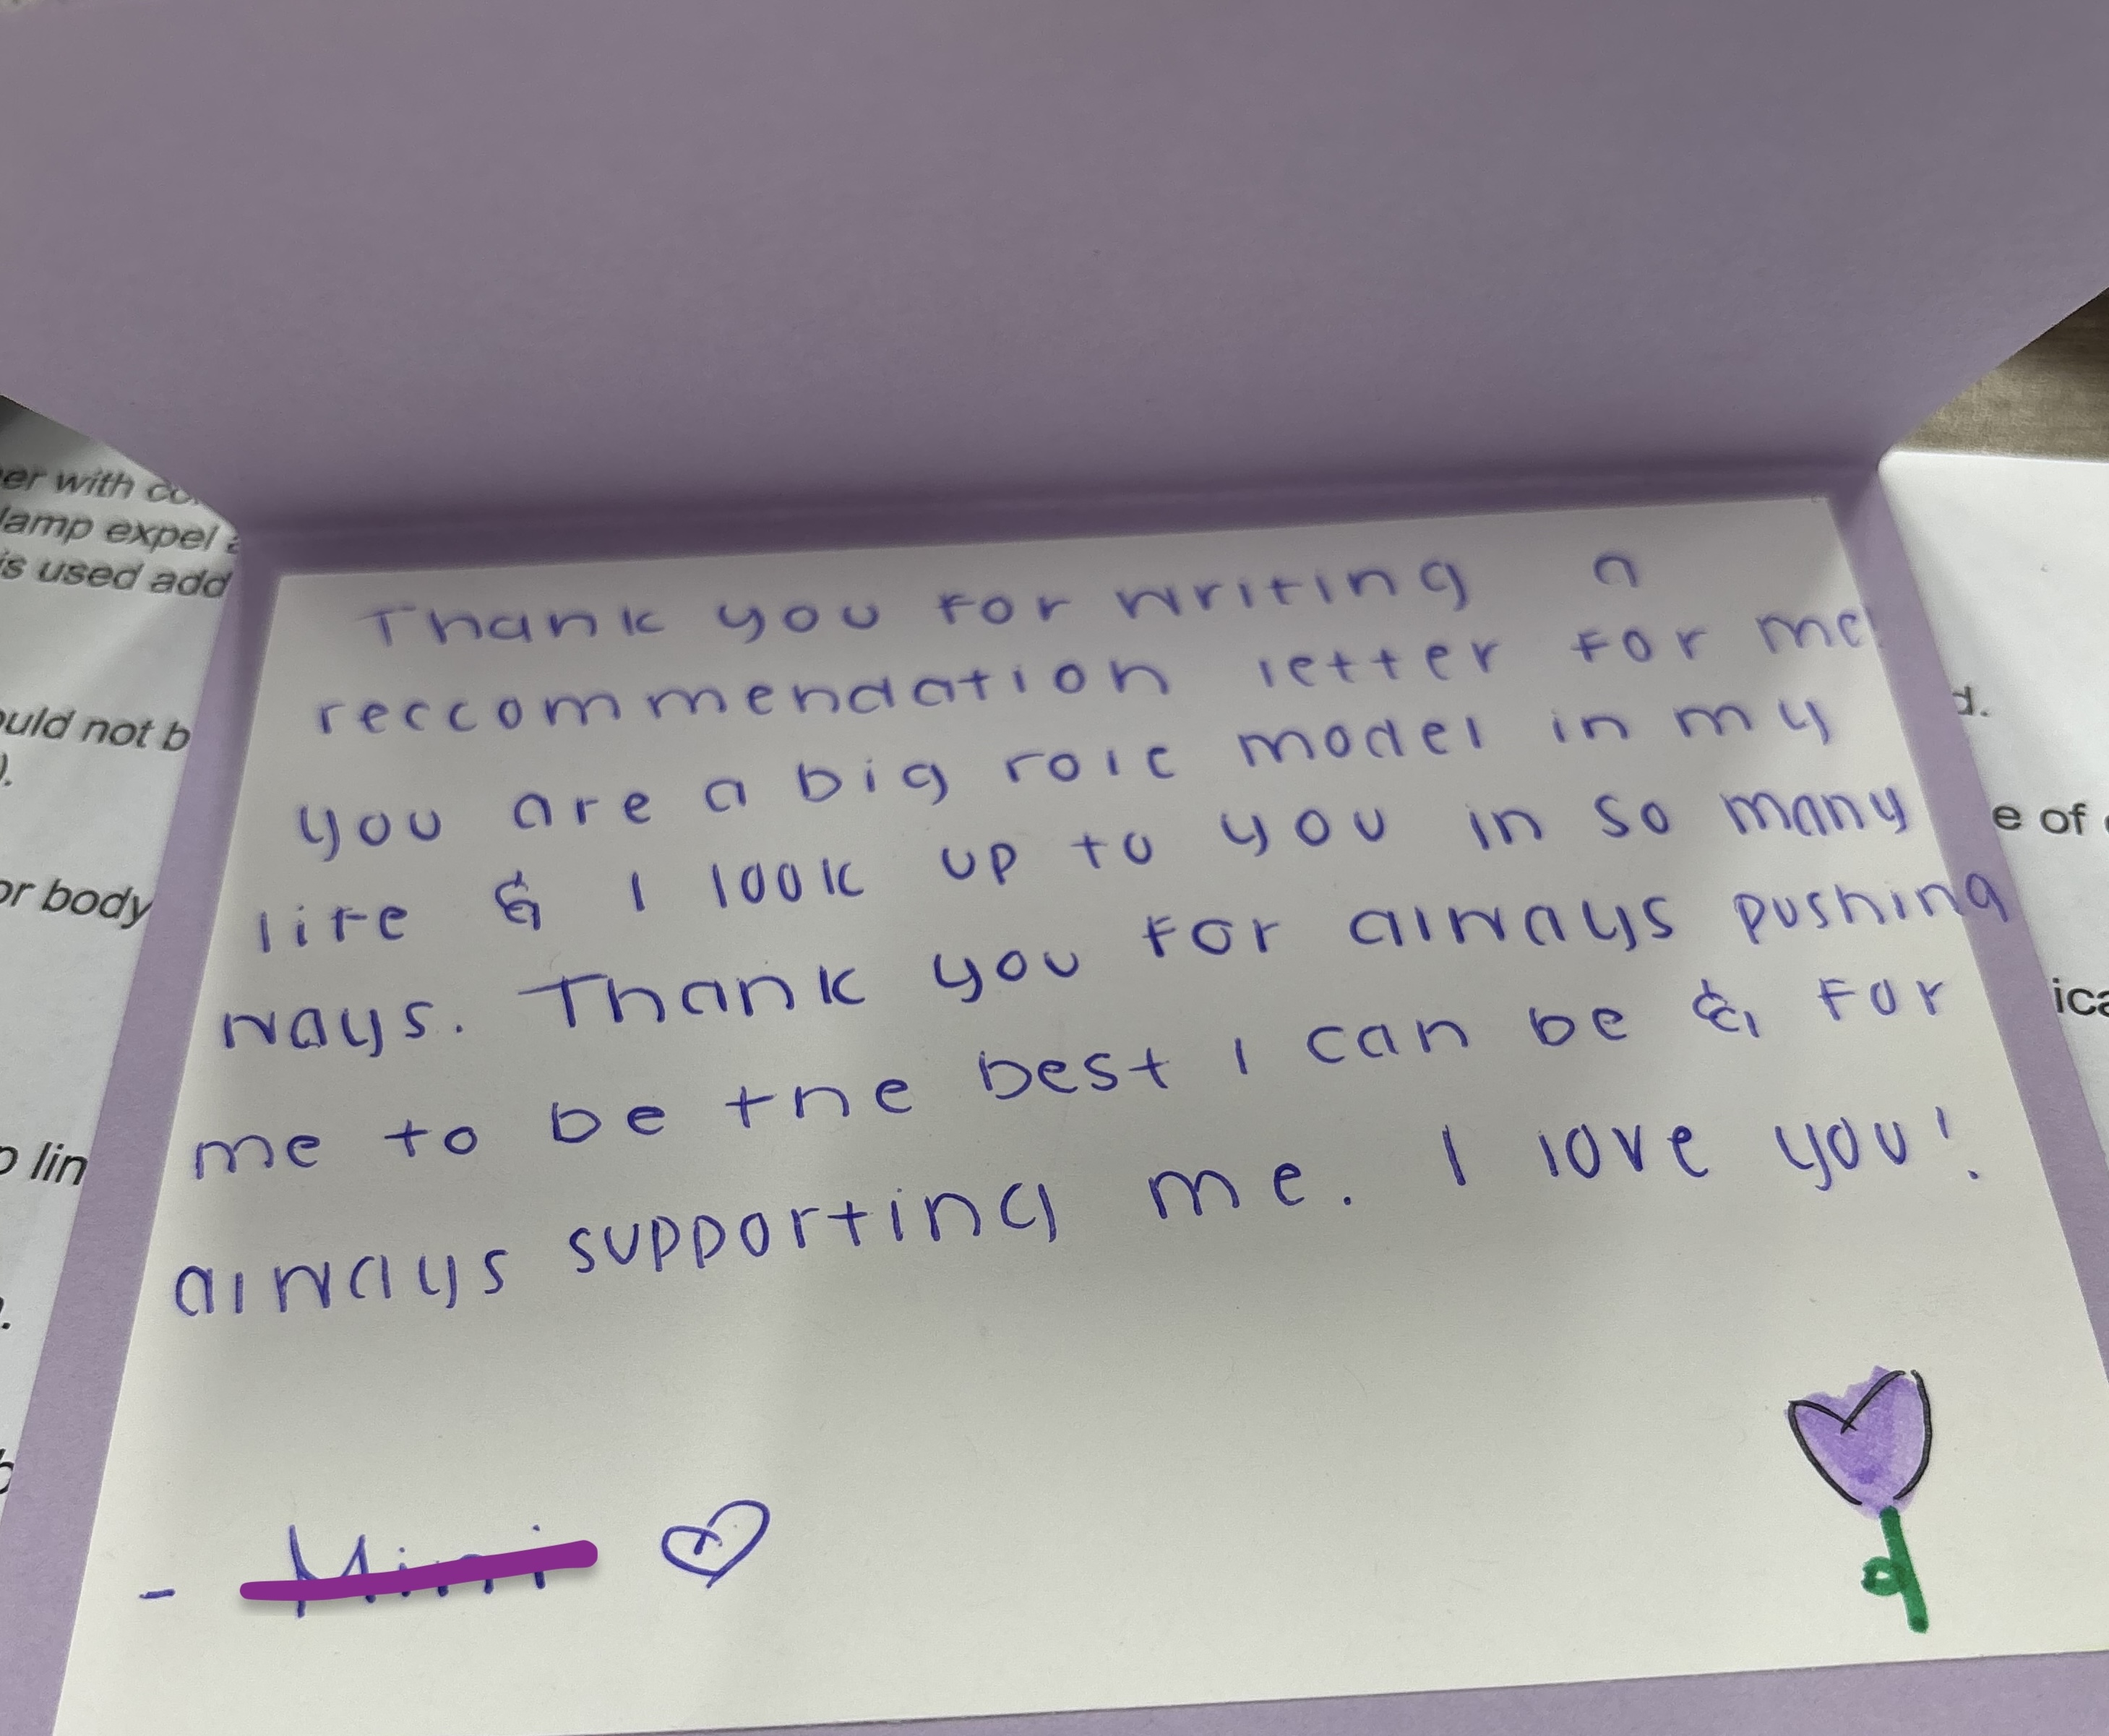 Thank you for writing a
reccommendation letter for me!
you are a big role model in my
life & I look up to you in so many
ways. Thank you for always pushing
me to be the best I can be & for
always supporting me. I love you!
-
er with
lamp expel
is used add
ould not b
).
or body
lin
d.
e of